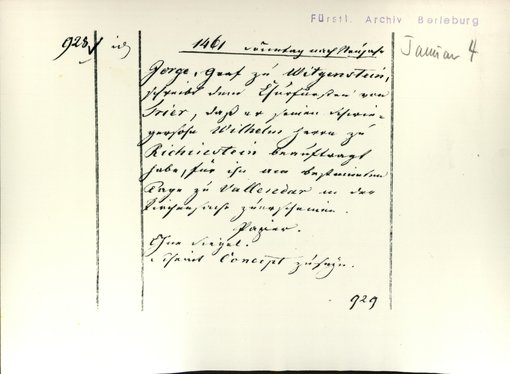 Fürstl. Archiv Berleburg
928 id 1461 Sonntag nach Neujahr Januar 4
Jorge, Graf zu Witgenstein,
schreibt dem Churfürsten von
Trier, daß er seinen Schwie-
gersohn Wilhelm Herrn zu
Richinstein beauftragt
habe, für ihn am bestimmten
Tage zu Vallendar in der
zu erscheinen.
Papier.
Ohne Siegel.
Scheint Concept zu seyn.
929